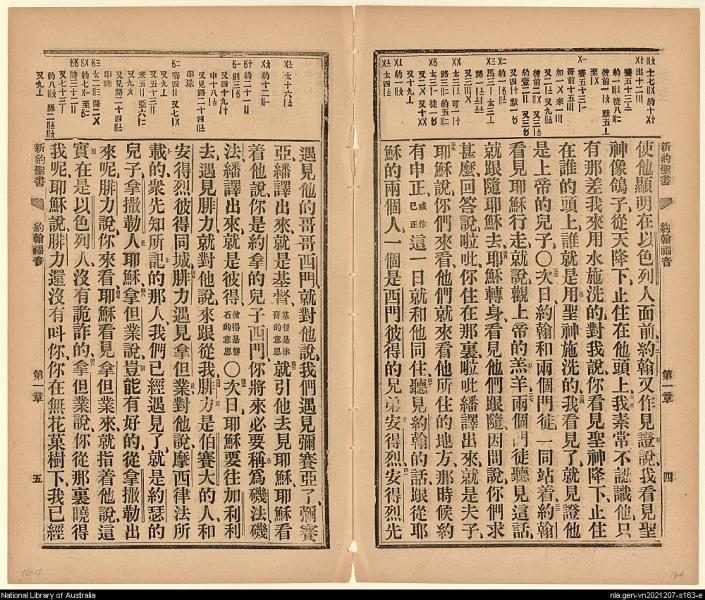 新約聖書
約翰福音
第一章
四
使他顯明在以色列人面前約翰又作見證說我看見聖
神像鴿子從天降下止住在他頭上我素常不認識他只
有那差我來用水施洗的對我說你看見聖神降下止住
在誰的頭上誰就是用聖神施洗的我看見了就見證他
是上帝的兒子〇次日約翰和兩個門徒一同站着約翰
看見耶穌行走就說觀上帝的羔羊兩個門徒聽見這話
就跟隨耶穌去耶穌轉身看見他們跟隨因問說你們求
甚麼回答說啦吡你住在那裏啦吡繙譯出來就是夫子
耶穌說你們來看他們就來看他所住的地方那時候約
有申正或作巳正這一日就和他同住聽見約翰的話跟從耶
穌的兩個人一個是西門彼得的兄弟安得烈安得烈先
遇見他的哥哥西門就對他說我們遇見彌賽亞了彌賽
亞繙譯出來就是基督基督是沐膏的意思就引他去見耶穌耶穌看
着他說你是約拿的兒子西門你將來必要稱爲磯法磯
法繙譯出來就是彼得彼得是磐石的意思〇次日耶穌要往加利利
去遇見腓力就對他說來跟從我腓力是伯賽大的人和
安得烈彼得同城腓力遇見拿但業對他說摩西律法所
載的衆先知所記的那人我們已經遇見了就是約瑟的
兒子拿撒勒人耶穌拿但業說豈能有好的從拿撒勒出
來呢腓力說你來看耶穌看見拿但業來就指着他說這
實在是以色列人沒有詭詐的拿但業說你從那裏曉得
我呢耶穌說腓力還沒有呌你你在無花菓樹下我已經
新約聖書
約翰福音
第一章
五
National Library of Australia
nla.gen-vn2021207-s163-e